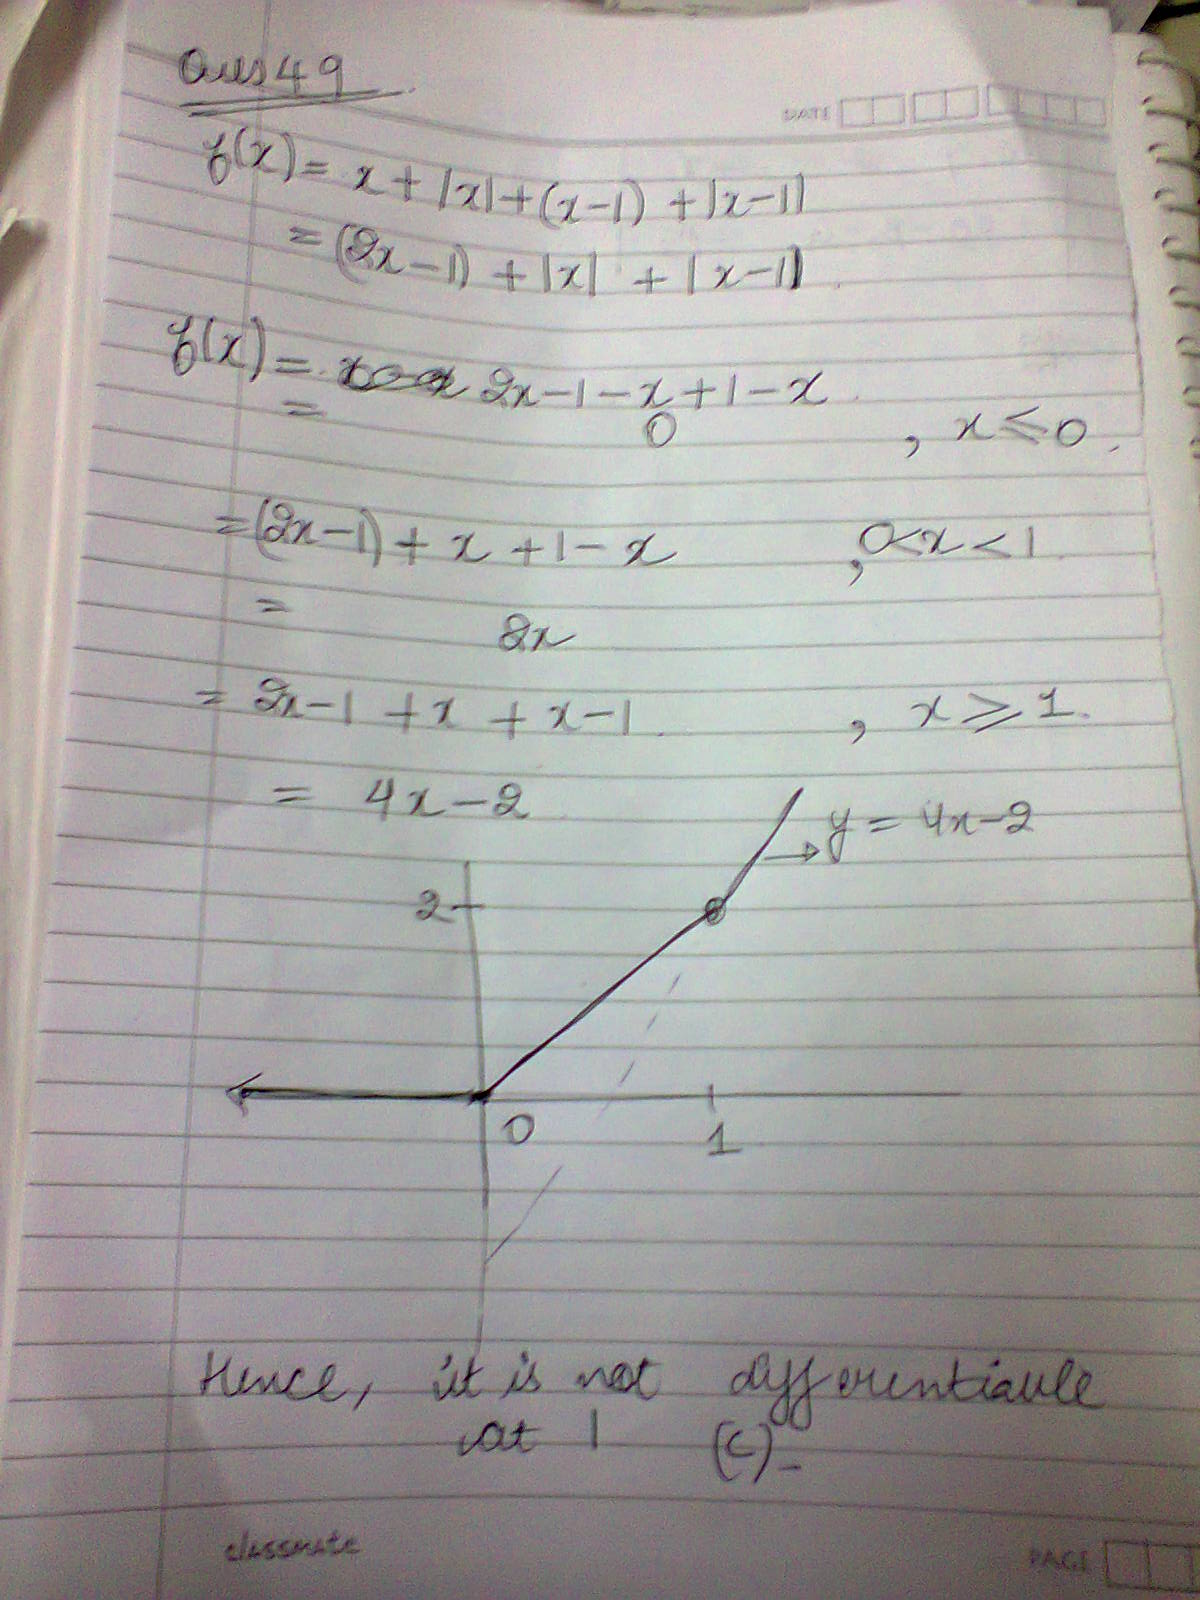 Ques 49
DATE
f(x) = x + |x| + (x-1) + |x-1|
= (2x-1) + |x| + |x-1|
f(x) = 2x-1-x+1-x
= 0 , x ≤ 0.
= (2x-1) + x + 1 - x , 0<x<1
= 2x
= 2x-1 + x + x-1. , x ≥ 1.
= 4x-2
y = 4x-2
2
0
1
Hence, it is not differentiable
at 1 (c)-
classmate
PAGE